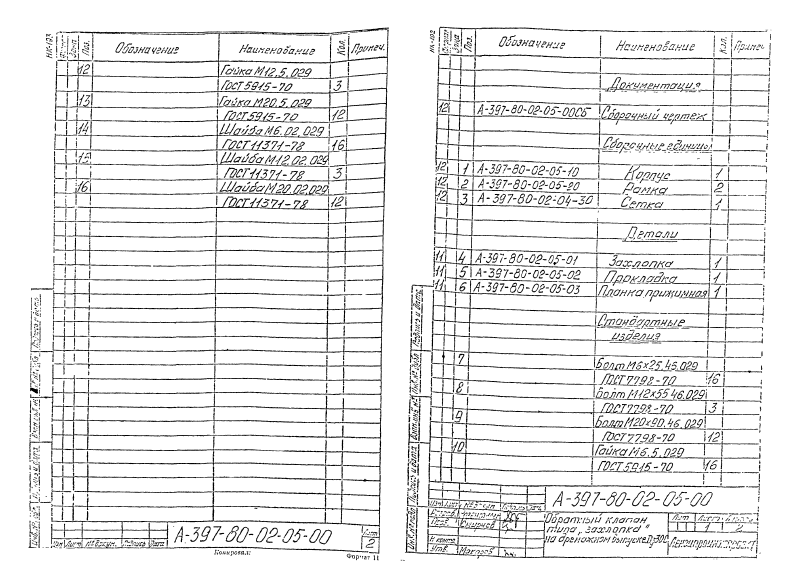 НК-193
Зона
Поз.
Обозначение
Наименование
Кол.
Примеч.
12 Гайка М12.5.029
ГОСТ 5915-70 3
13 Гайка М20.5.029
ГОСТ 5915-70 12
14 Шайба М6.02.029
ГОСТ 11371-78 16
15 Шайба М12.02.029
ГОСТ 11371-78 3
16 Шайба М20.02.029
ГОСТ 11371-78 12
А-397-80-02-05-00
Лист
2
Копировал:
Формат 11
Зона
Поз.
Обозначение
Наименование
Кол.
Примеч.
Документация
12 А-397-80-02-05-00СБ Сборочный чертеж
Сборочные единицы
12 1 А-397-80-02-05-10 Корпус 1
12 2 А-397-80-02-05-20 Рамка 2
12 3 А-397-80-02-04-30 Сетка 1
Детали
11 4 А-397-80-02-05-01 Захлопка 1
11 5 А-397-80-02-05-02 Прокладка 1
11 6 А-397-80-02-05-03 Планка прижимная 1
Стандартные
изделия
7 Болт М6×25.46.029
ГОСТ 7798-70 16
8 Болт М12×55.46.029
ГОСТ 7798-70 3
9 Болт М20×90.46.029
ГОСТ 7798-70 12
10 Гайка М6.5.029
ГОСТ 5915-70 16
А-397-80-02-05-00
Обратный клапан
типа „захлопка"
на дренажном выпуске
Лит. Лист
1 2
Смирнов
Н.контр.
Утв.